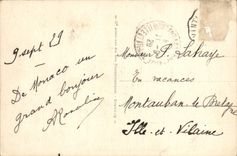 9 sept 29
De Monaco un
grand bonjour
Monsieur P. Lahaye
En vacances
Montauban de Bretagne
Ille et Vilaine